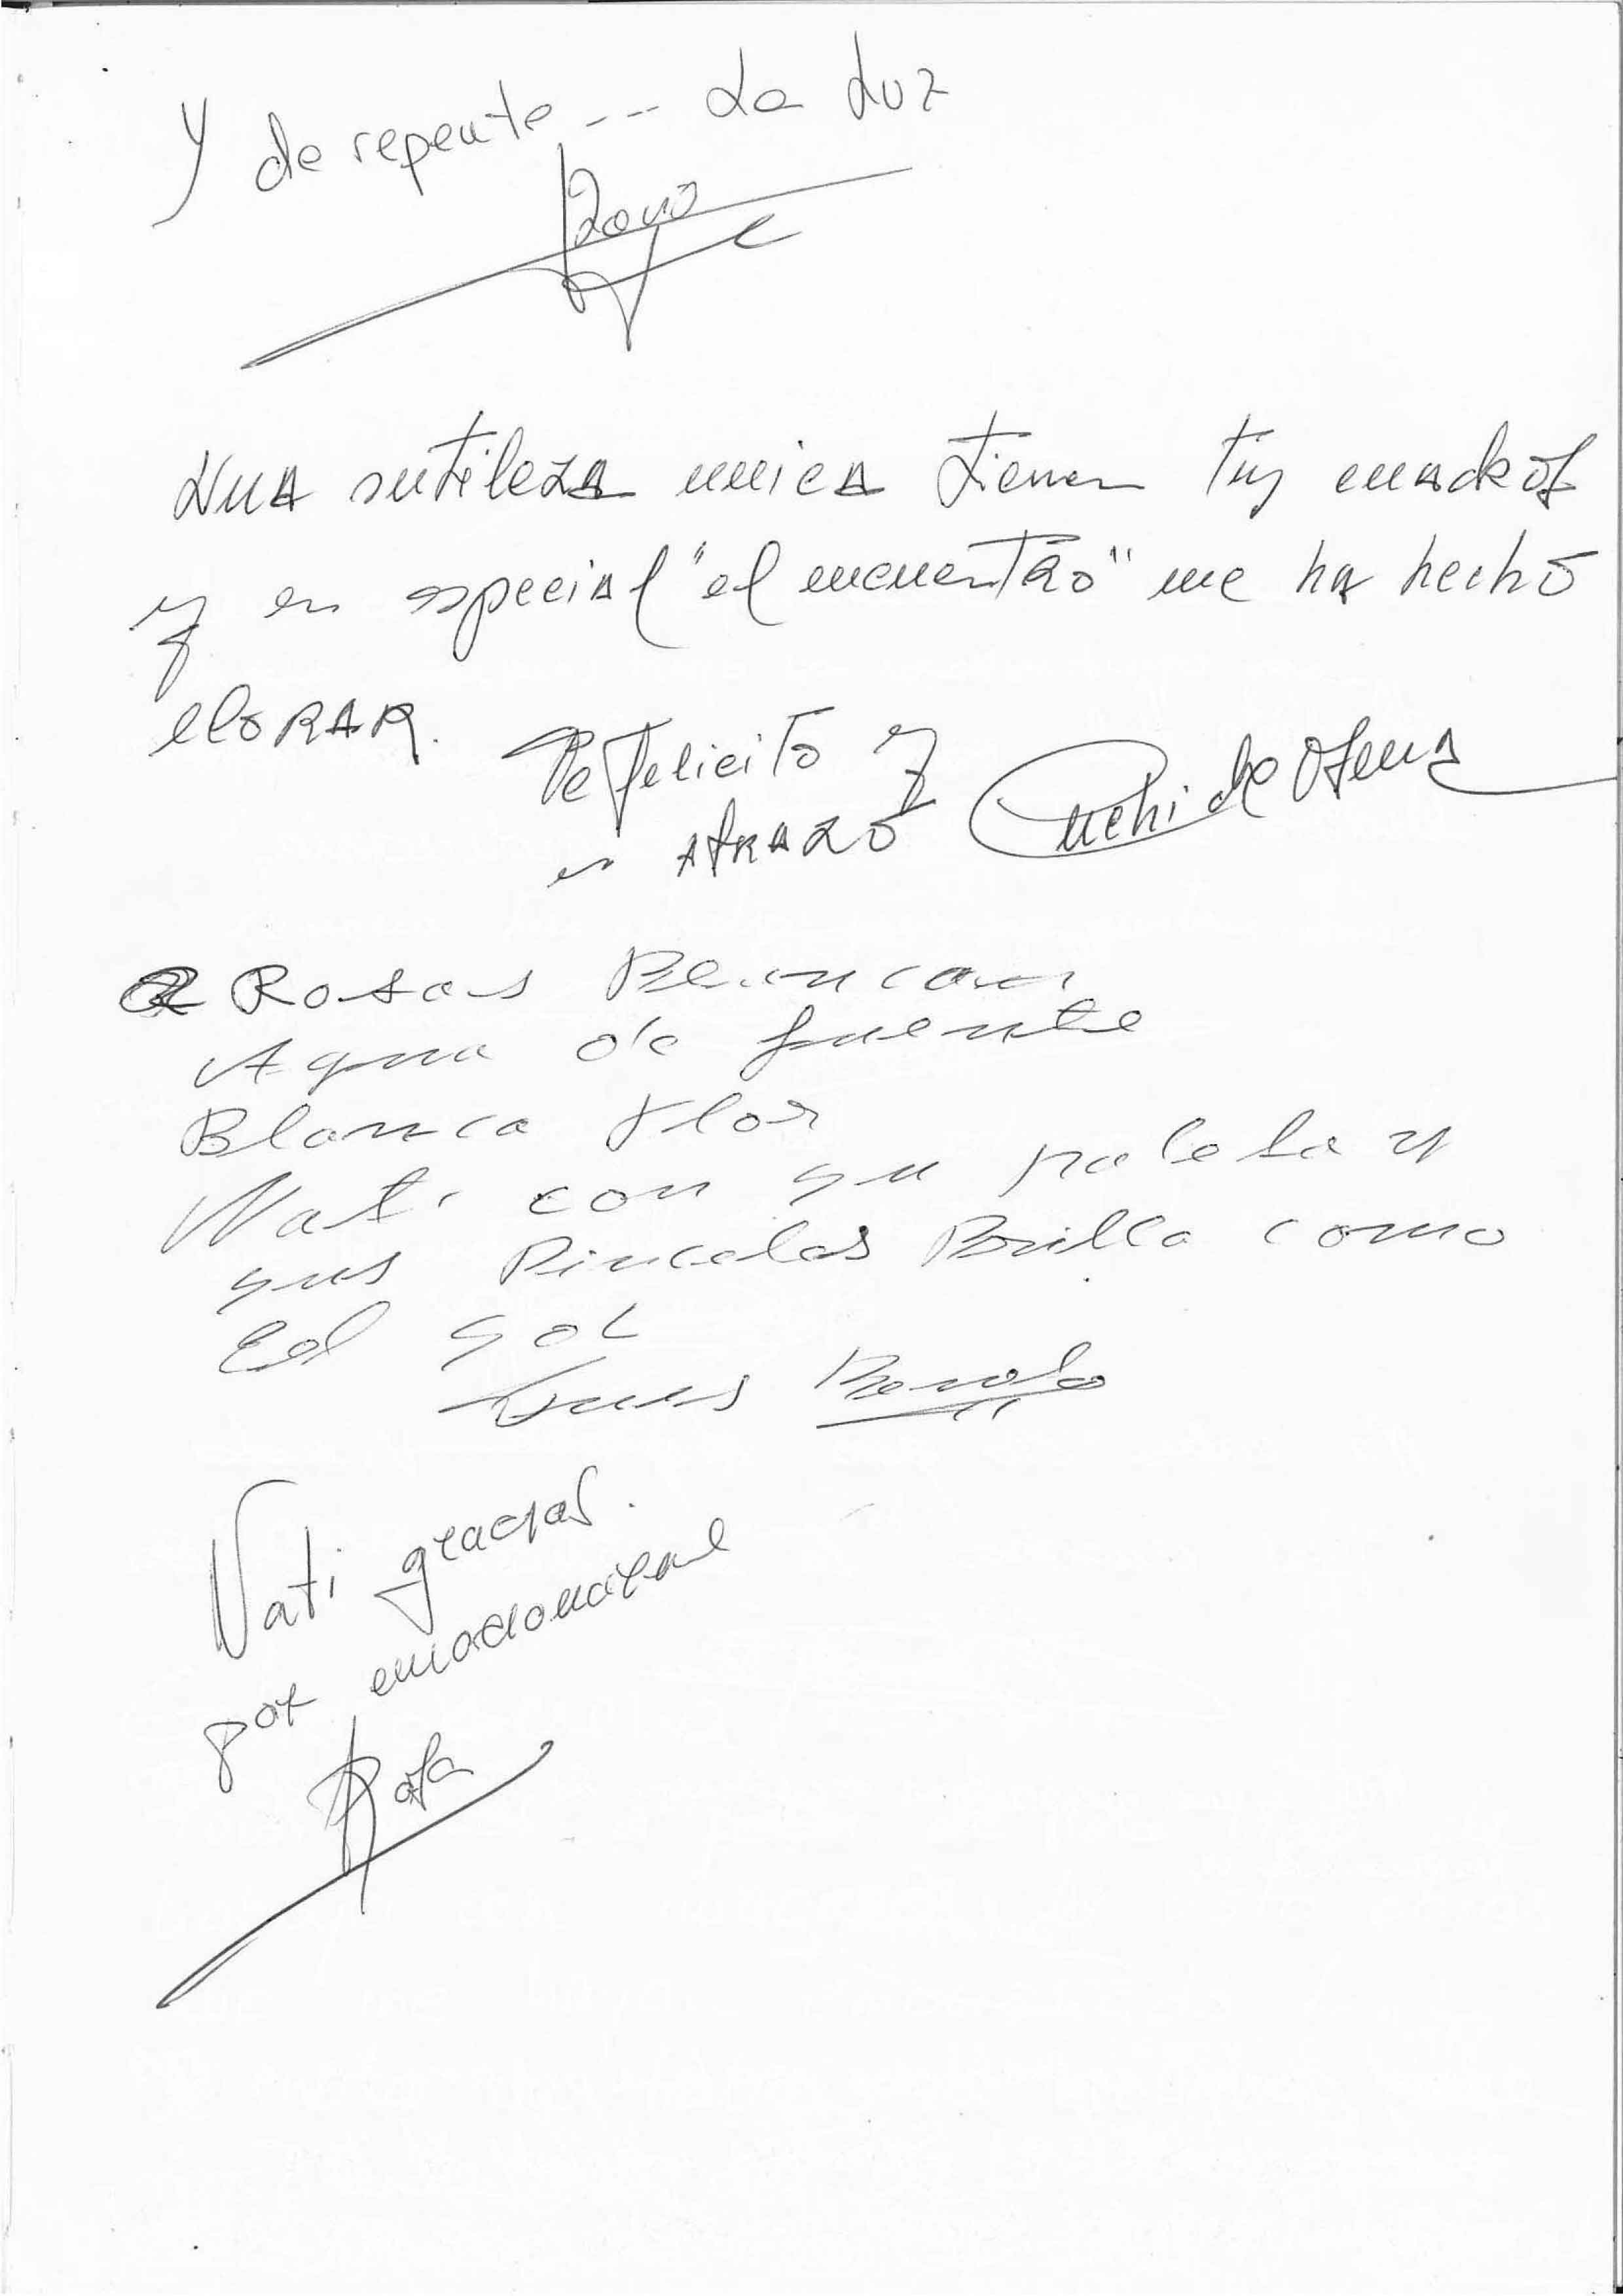 Y de repente --- La Luz
UNA sutileza unica tienen tus cuadros
y en especial "el encuentro" me ha hecho
llorar.
Te felicito y
un abrazo
Rosas Blancas
Agua de fuente
Blanca Flor
Nati con su paleta y
sus Pinceles Brilla como
El sol
Nati gracias.
por emocionarme
Rosa